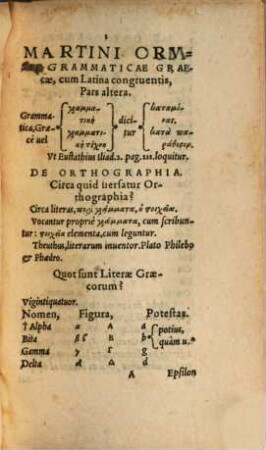 MARTINI CRV-
GRAMMATICAE GRAE-
cæ, cum Latina congruentis,
Pars altera.
Gramma-
tica, Græ
cè uel
γραμμα-
τικὴ
γραμματι-
κὴ τέχνη
dici
tur
Vt Eustathius Iliad. 2. pag. 211. loquitur.
DE ORTHOGRAPHIA.
Circa quid uersatur Or-
thographia?
Circa literas, περὶ γράμματα, ἢ στοιχεῖα.
Vocantur propriè γράμματα, cum scribun-
tur: στοιχεῖα elementa, cum leguntur.
Theuthus, literarum inuentor. Plato Philebo
& Phædro.
Quot sunt Literæ Græ-
corum?
Vigintiquatuor.
Nomen, Figura, Potestas.
Alpha α A a
Bita β B b potius,
quàm u.
Gamma γ Γ g
Delta δ Δ d
A Epsilon